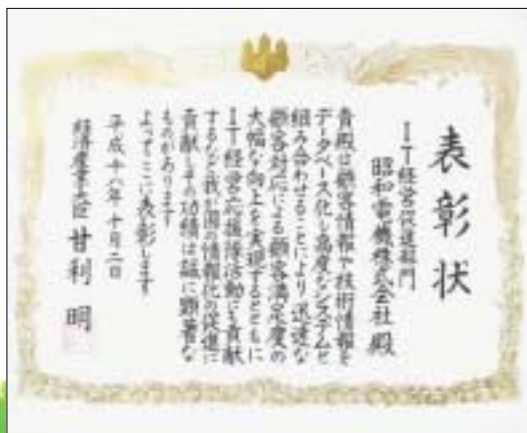 表彰状
IT経営促進部門
昭和電機株式会社 殿
貴殿は顧客情報や技術情報を
データベース化し高度なシステムと
組み合わせることにより 迅速な
顧客対応による顧客満足度の
大幅な向上を実現するとともに
IT経営応援隊活動にも貢献
するなど我が国の情報化の促進に
貢献しその功績は誠に顕著な
ものがあります
よってここに表彰します
平成十八年十月二日
経済産業大臣 甘利 明